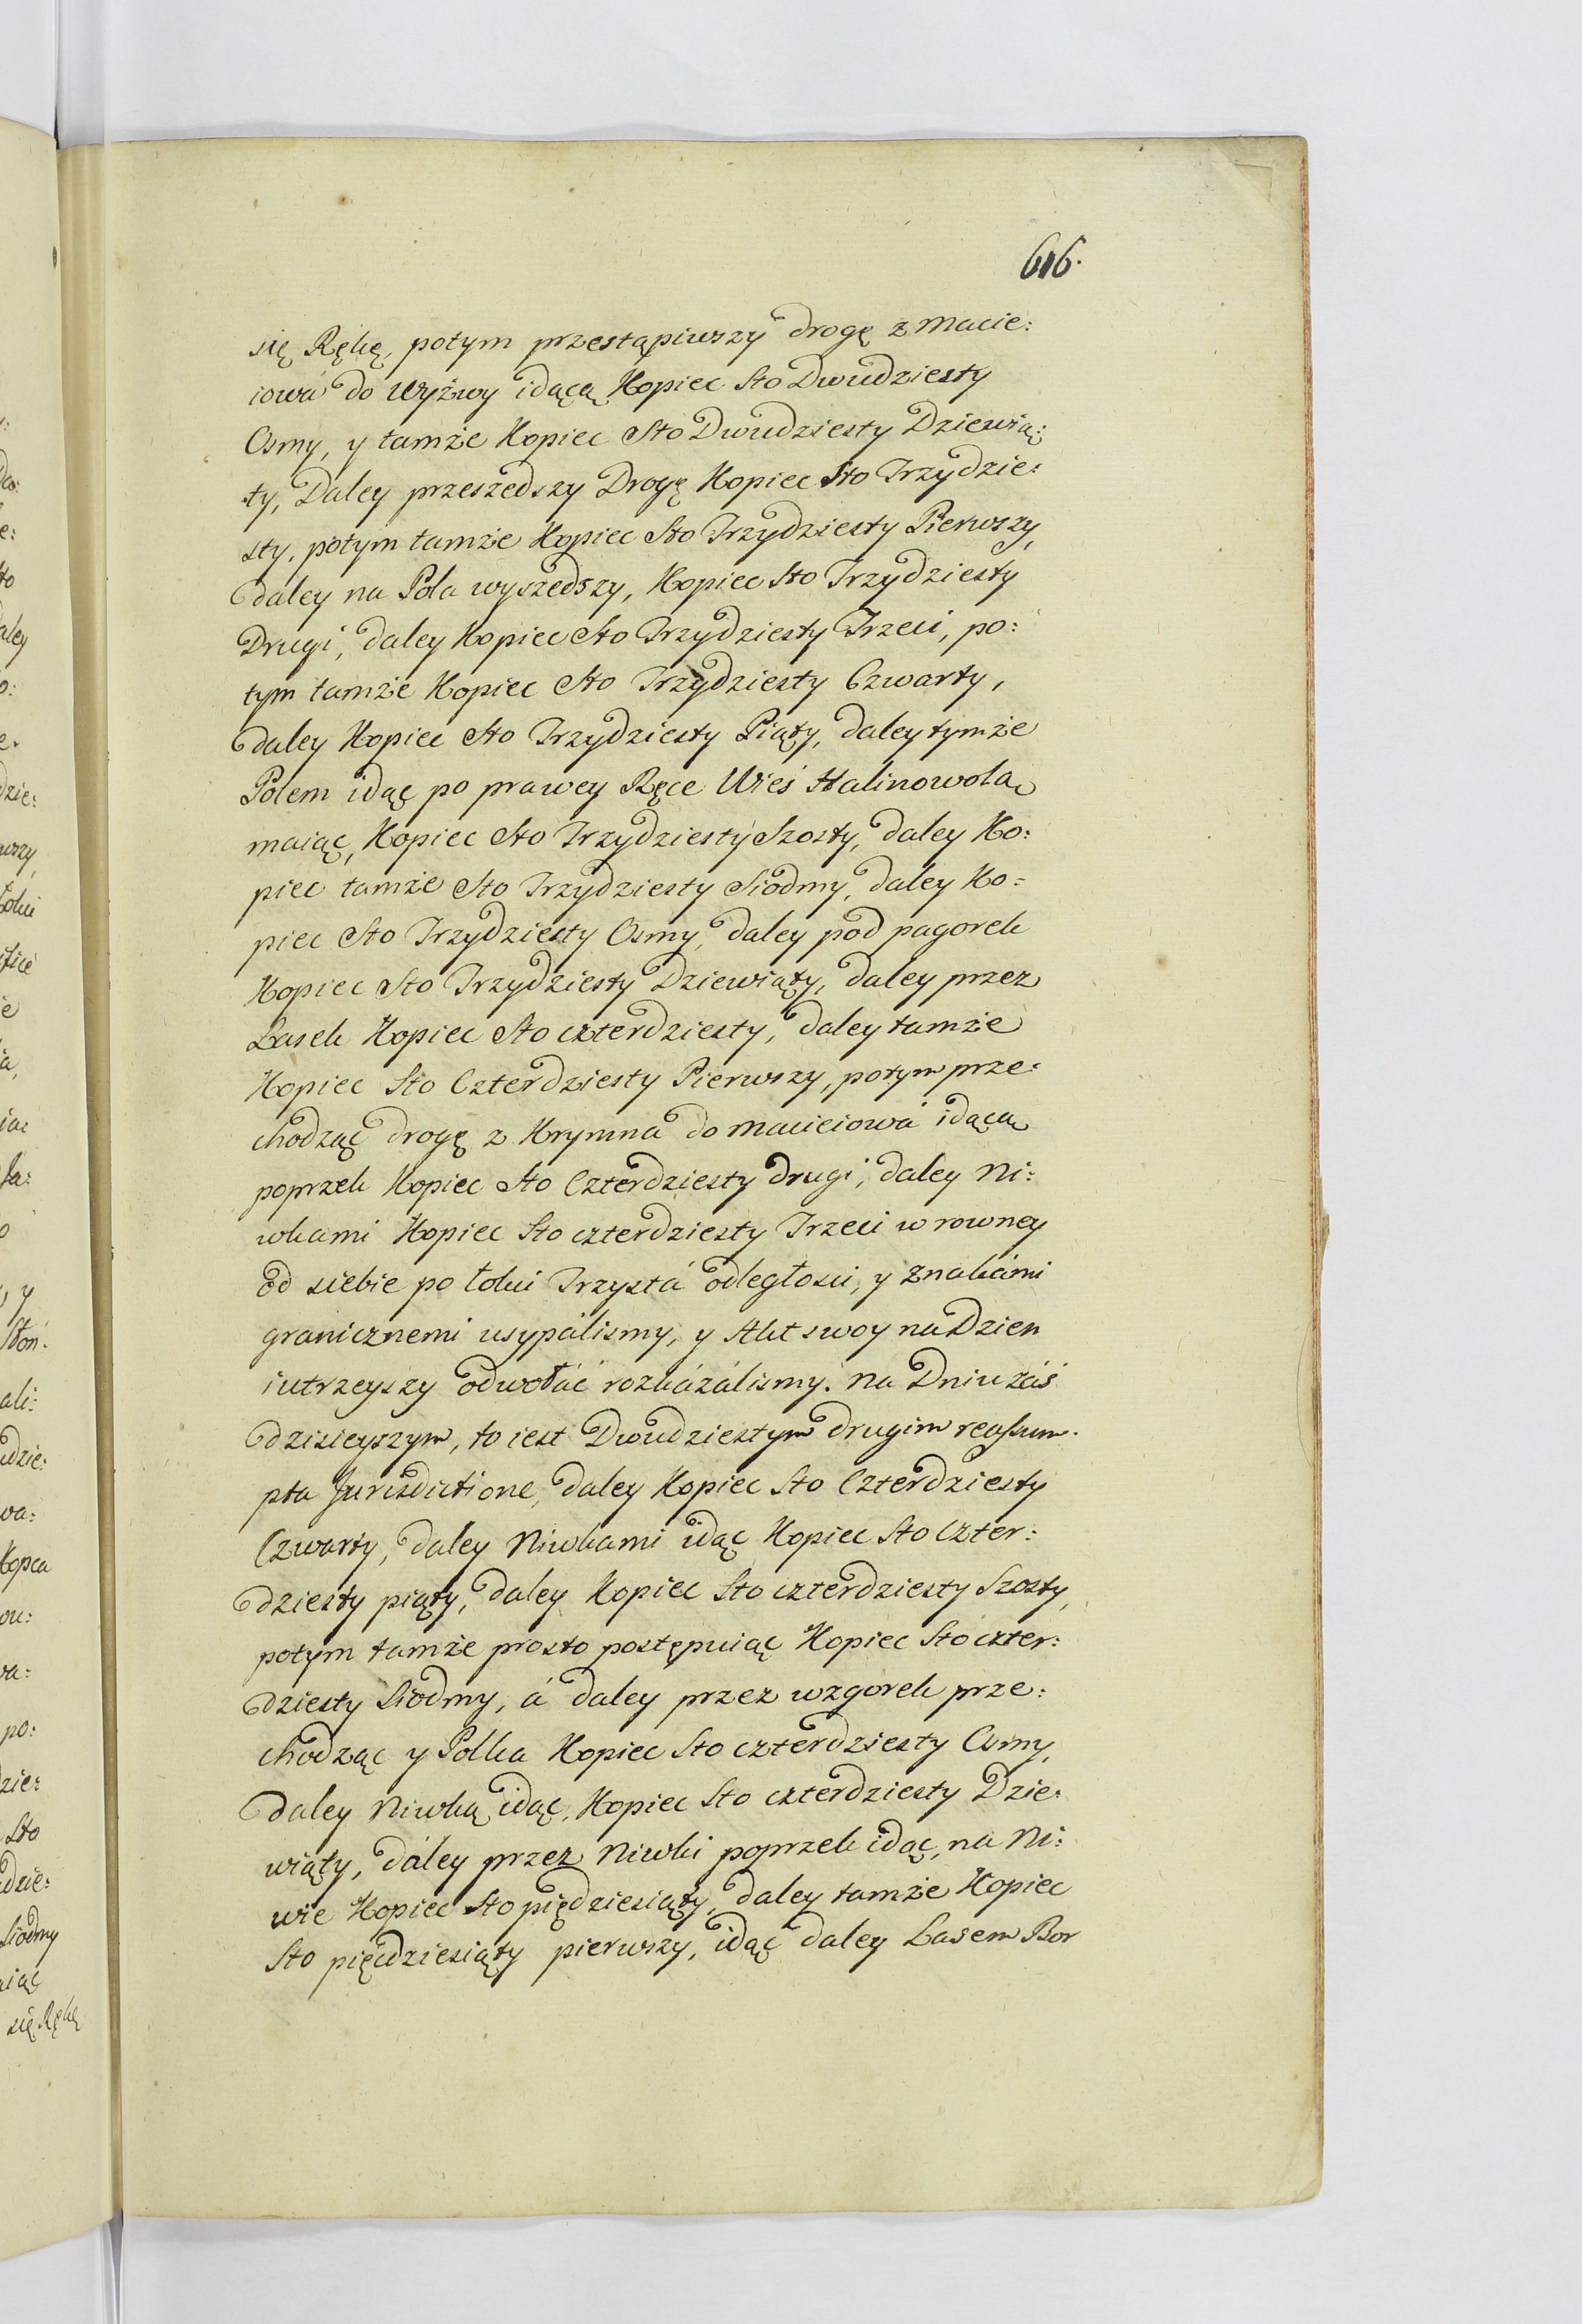 616.
się Rękę, potym przestąpiwszy drogę z Macie:
iowá do Wyżwy idącą Kopiec Sto Dwudziesty
Osmy, y tamże Kopiec Sto Dwudziesty Dziewią:
ty, Daley przeszedszy Drogę Kopiec Sto Trzydzie:
sty, potym tamże Kopiec Sto Trzydziesty Pierwszy,
daley na Pola wyszedszy, Kopiec Sto Trzydziesty
Drugi, daley Kopiec Sto Trzydziesty Trzeci, po:
tym tamże Kopiec Sto Trzydziesty Czwarty,
daley Kopiec Sto Trzydziesty Piąty, daley tymże
Polem idąc po prawey Ręce Wieś Halinowola
maiąc, Kopiec Sto Trzydziesty Szosty, daley Ko:
piec tamże Sto Trzydziesty Siodmy, daley Ko=
piec Sto Trzydziesty Osmy, daley pod pagorek
Kopiec Sto Trzydziesty Dziewiąty, daley przez
Lasek Kopiec Sto czterdziesty, daley tamże
Kopiec Sto Czterdziesty Pierwszy, potym prze:
chodząc drogę z Krymna do Macieiowá idącą
poprzek Kopiec Sto Czterdziesty drugi, daley Ni:
wkami Kopiec Sto czterdziesty Trzeci w rowney
od siebie po łokci Trzystá odległosci, y Znakámi
granicznemi usypálismy, y Akt swoy na Dzien
iutrzeyszy odwołáć rozkázálismy. Na Dniu záś
dzisieyszym, to iest Dwudziestym drugim reassum.
pta Jurisdictione, daley Kopiec Sto Czterdziesty
Czwarty, daley Niwkami idąc Kopiec Sto Czter:
dziesty piąty, daley Kopiec Sto czterdziesty Szosty,
potym tamże prosto postępuiąc Kopiec Sto czter:
dziesty Siodmy, á daley przez wzgorek prze:
chodząc y Polka Kopiec Sto czterdziesty Osmy,
daley Niwką idąc, Kopiec Sto czterdziesty Dzie:
wiąty, dáley przez Niwki poprzek idąc, na Ni:
wie Kopiec Sto piędziesiąty, daley tamże Kopiec
Sto pięcdziesiąty pierwszy, idąc daley Lasem Bor